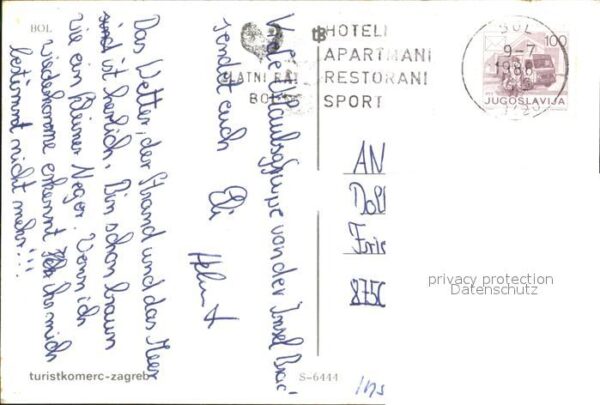 BOL
Viele Urlaubsgrüße von der Insel Brač
sendet euch Eli
Helmut
Das Wetter, der Strand und das Meer
ist herlich. Bin schon braun
wie ein kleiner Neger. Wenn ich
wiederkomme erkennt ihr mich
bestimmt nicht mehr!!!
turistkomerc-zagreb
S-6444
ZLATNI RAT
BOL
HOTELI
APARTMANI
RESTORANI
SPORT
BOL
9-7
100
JUGOSLAVIJA
AN
Frie
8750
privacy protection
Datenschutz